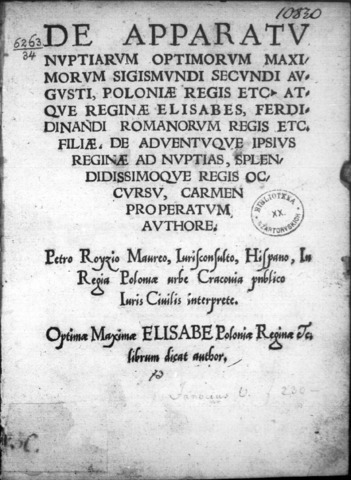 10830
6263
34
DE APPARATV
NVPTIARVM OPTIMORVM MAXI-
MORVM SIGISMVNDI SECVNDI AV-
GVSTI, POLONIÆ REGIS ETC. AT-
QVE REGINÆ ELISABES, FERDI-
DINANDI ROMANORVM REGIS ETC.
FILIÆ. DE ADVENTVQVE IPSIVS
REGINÆ AD NVPTIAS, SPLEN-
DIDISSIMOQVE REGIS OC-
CVRSV, CARMEN
PROPERATVM
AVTHORE.
BIBLIOTEKA
XX.
CZARTORYSKICH
Petro Royzio Maureo, Iurisconsulto, Hispano, In
Regia Poloniæ urbe Cracouia publico
Iuris Ciuilis interprete.
Optimæ Maximæ ELISABE Poloniæ Reginæ &c.
librum dicat author.